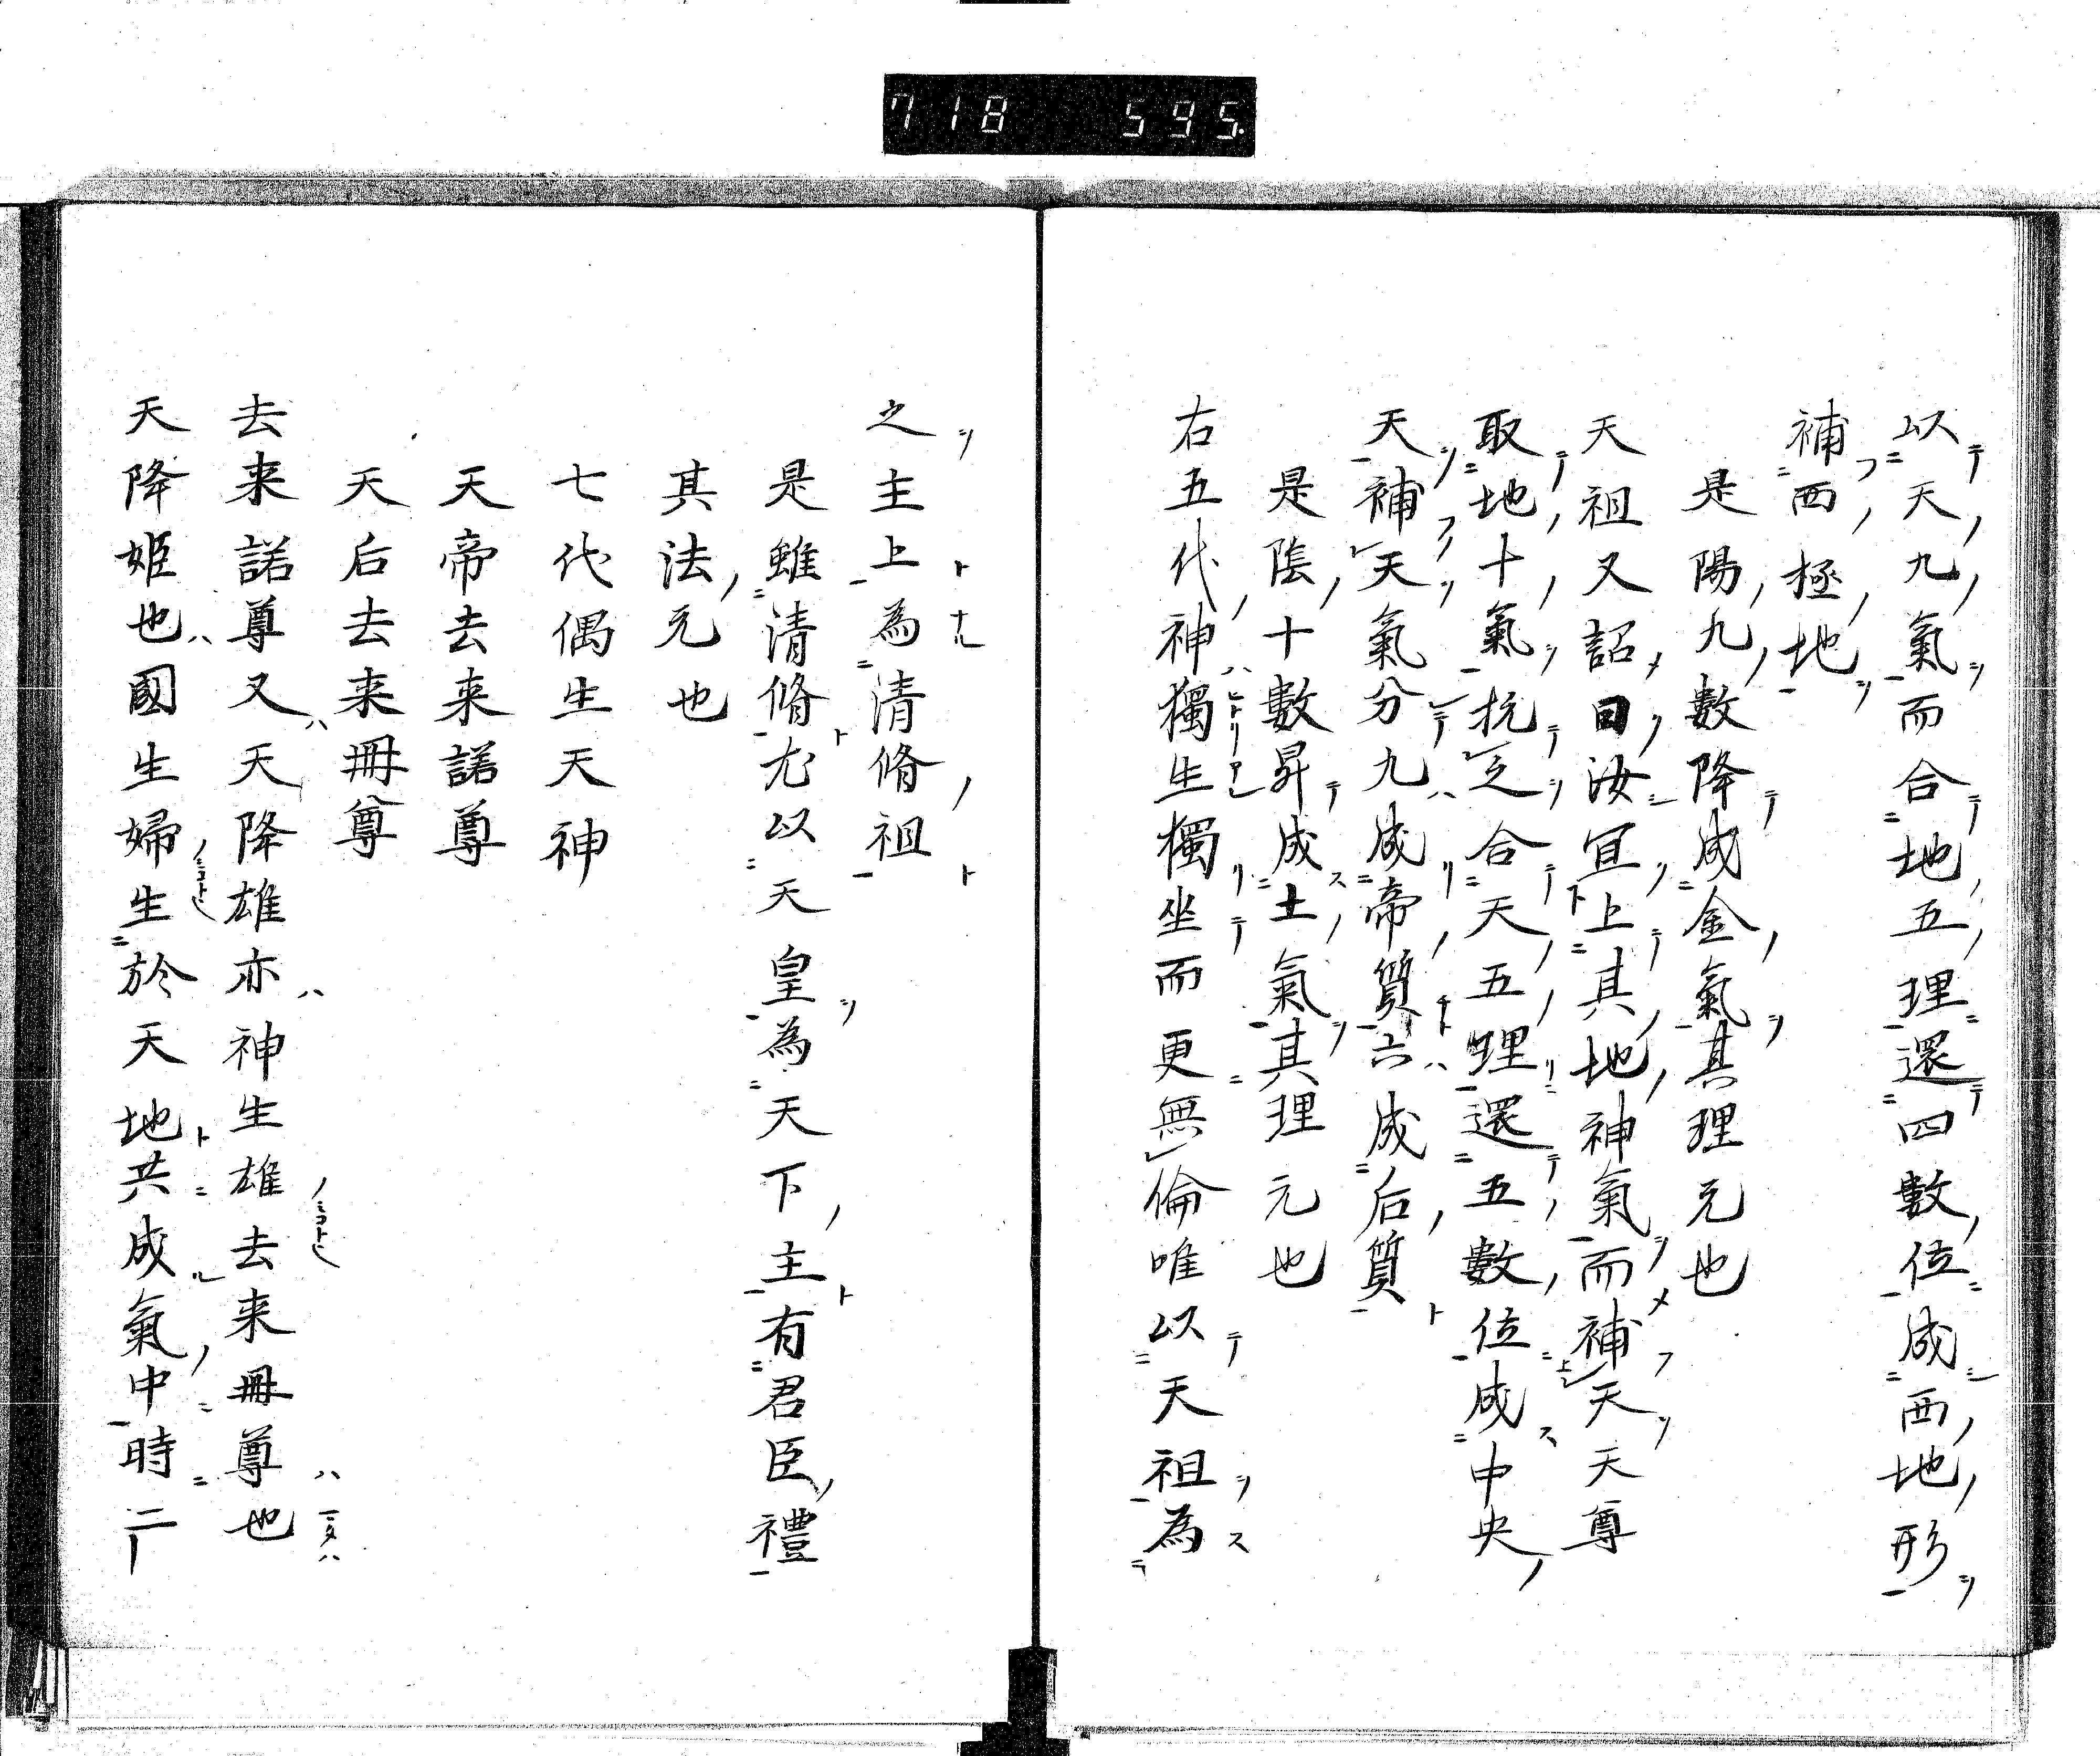 718 595
以天九氣而合地五理還四數位成西地形
補西極地
是陽九數降成金氣其理元也
天祖又詔曰汝宜上其地神氣而補天天尊
取地十氣抗之合天五理還五數位成中央
天補天氣分九成帝質六成后質
是陰十數昇成土氣其理元也
右五代神獨生獨坐而更無倫唯以天祖為
之主上為清脩祖
是雖清脩尤以天皇為天下主有君臣禮
其法元也
七代偶生天神
天帝去来諾尊
天后去来冊尊
去来諾尊又天降雄亦神生雄去来冊尊也
天降姬也國生婦生於天地共成氣中時二